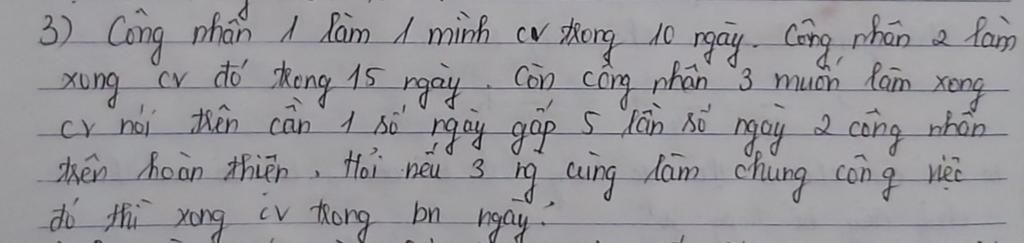 3) Công nhân 1 làm 1 mình cv trong 10 ngày. Công nhân 2 làm
xong cv đó trong 15 ngày. Còn công nhân 3 muốn làm xong
cv nói trên cần 1 số ngày gấp 5 lần số ngày 2 công nhân
trên hoàn thiện. Hỏi nếu 3 ng cùng làm chung công việc
đó thì xong cv trong bn ngày.